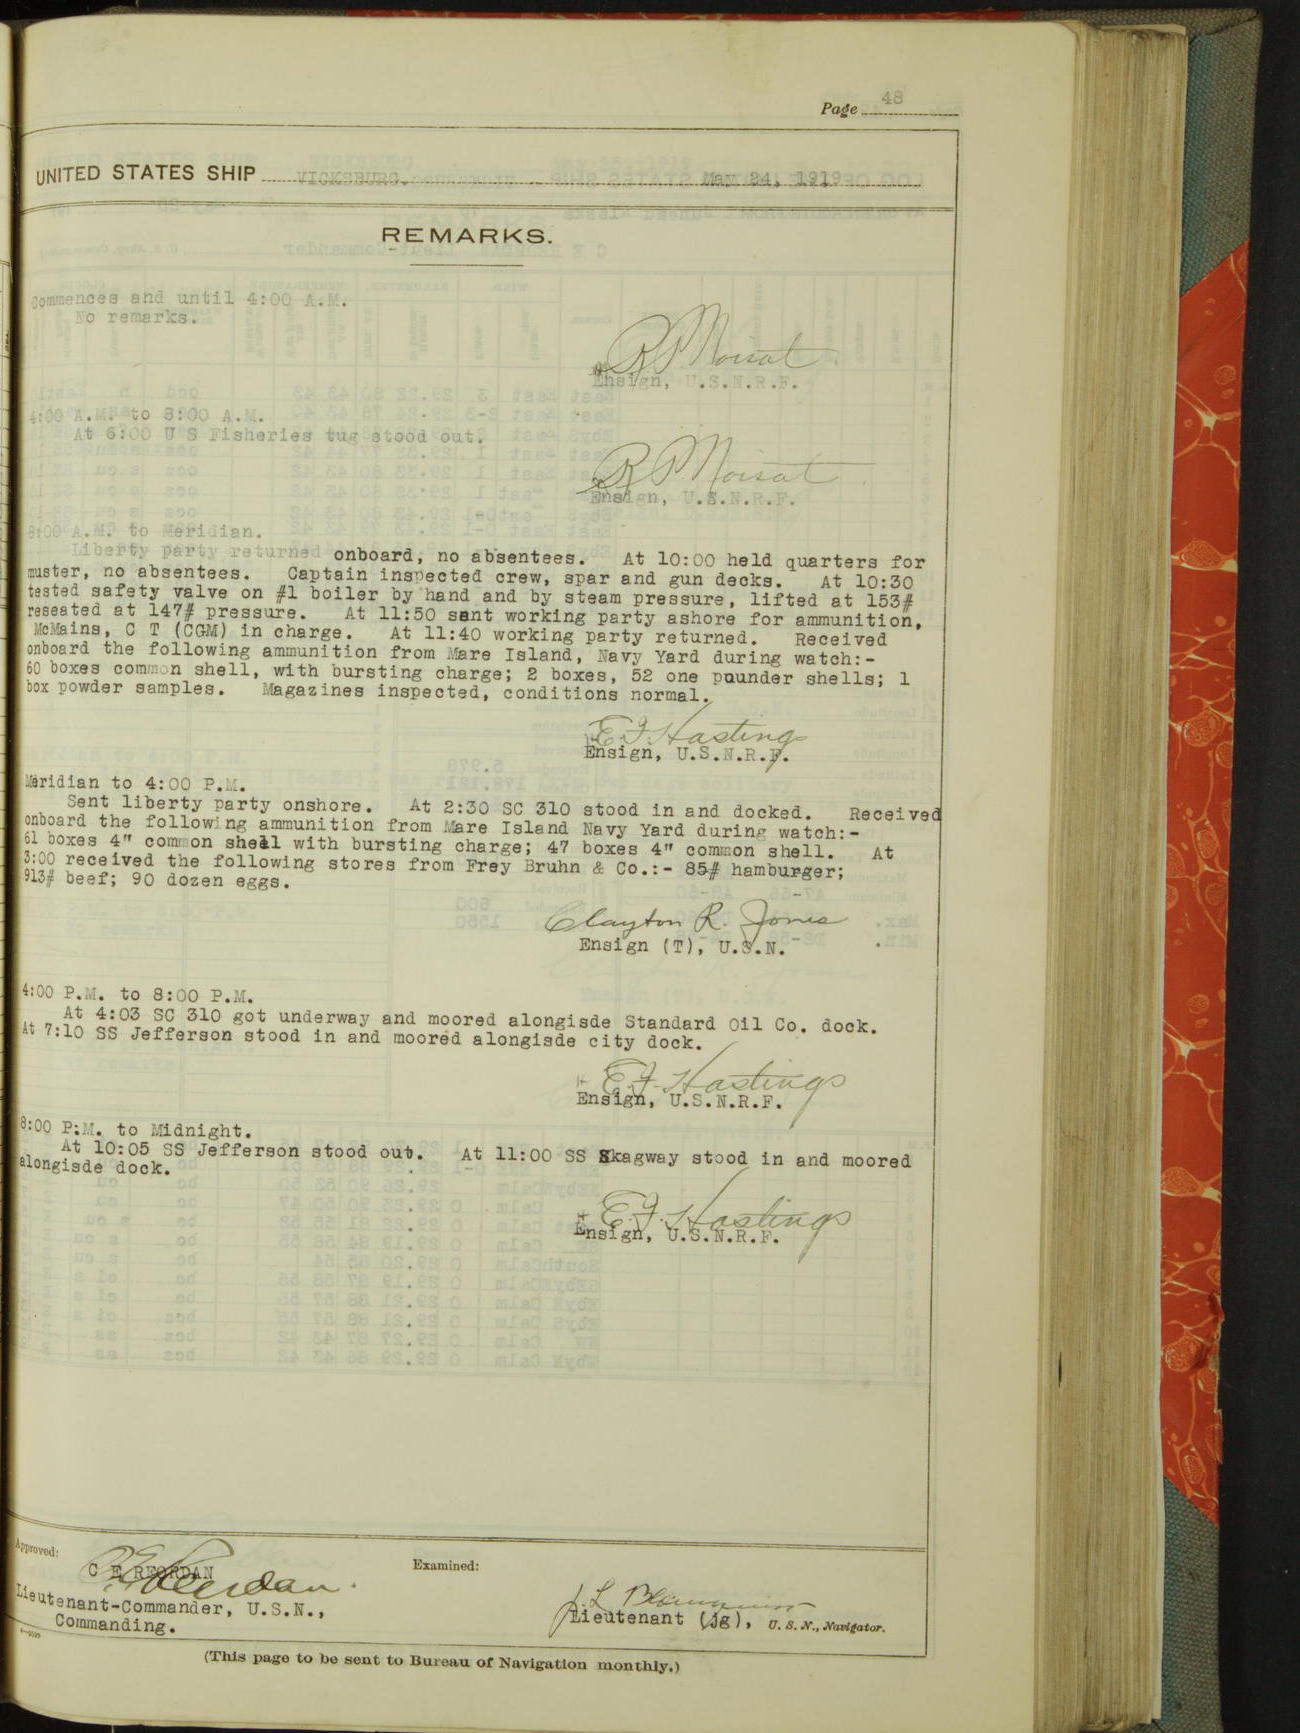 Page 48
UNITED STATES SHIP VICKSBURG. May 24, 1919
REMARKS.
Commences and until 4:00 A.M.
No remarks.
R P Moisat
Ensign, U.S.N.R.F.
4:00 A.M. to 8:00 A.M.
At 6:00 U S Fisheries tug stood out.
R P Moisat
Ensign, U.S.N.R.F.
8:00 A.M. to Meridian.
Liberty party returned onboard, no absentees. At 10:00 held quarters for
muster, no absentees. Captain inspected crew, spar and gun decks. At 10:30
tested safety valve on #1 boiler by hand and by steam pressure, lifted at 153#
reseated at 147# pressure. At 11:50 sent working party ashore for ammunition,
McMains, C T (CGM) in charge. At 11:40 working party returned. Received
onboard the following ammunition from Mare Island, Navy Yard during watch:-
60 boxes common shell, with bursting charge; 2 boxes, 52 one pounder shells; 1
box powder samples. Magazines inspected, conditions normal.
E.F. Hastings
Ensign, U.S.N.R.F.
Meridian to 4:00 P.M.
Sent liberty party onshore. At 2:30 SC 310 stood in and docked. Received
onboard the following ammunition from Mare Island Navy Yard during watch:-
61 boxes 4" common shell with bursting charge; 47 boxes 4" common shell. At
3:00 received the following stores from Frey Bruhn & Co.:- 85# hamburger;
913# beef; 90 dozen eggs.
Clayton R. Jones
Ensign (T), U.S.N.
4:00 P.M. to 8:00 P.M.
At 4:03 SC 310 got underway and moored alongisde Standard Oil Co. dock.
At 7:10 SS Jefferson stood in and moored alongisde city dock.
E.F. Hastings
Ensign, U.S.N.R.F.
8:00 P.M. to Midnight.
At 10:05 SS Jefferson stood out. At 11:00 SS Skagway stood in and moored
alongisde dock.
E.F. Hastings
Ensign, U.S.N.R.F.
Approved:
C E REORDAN
Lieutenant-Commander, U.S.N.,
Commanding.
Examined:
J. L
Lieutenant (jg), U. S. N., Navigator.
(This page to be sent to Bureau of Navigation monthly.)